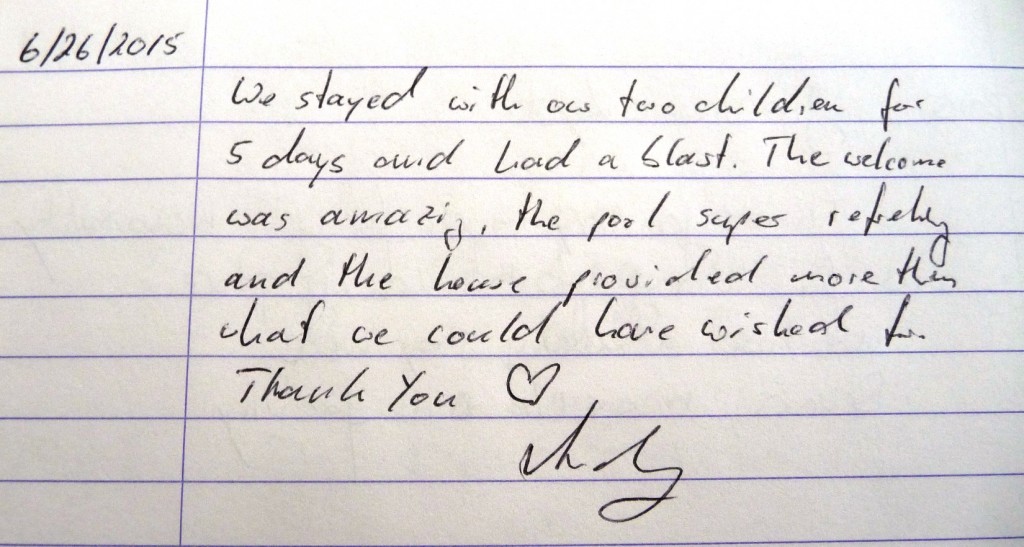 6/26/2015
We stayed with our two children for
5 days and had a blast. The welcome
was amazing, the pool super refreshing
and the house provided more than
what we could have wished for.
Thank You ♡